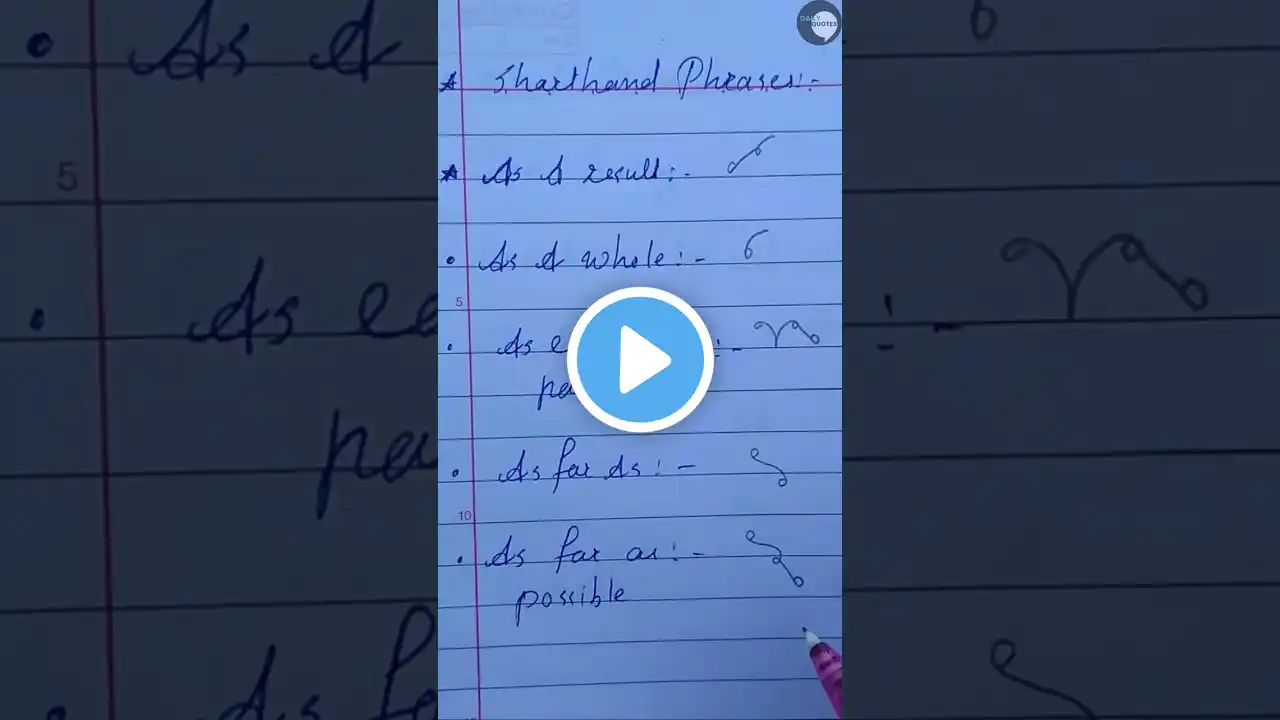 DAILY QUOTES
★ Shorthand Phrases:-
★ As A result:-
• As A whole:-
5
• As :-
10
• As far As:-
• As far as:-
possible